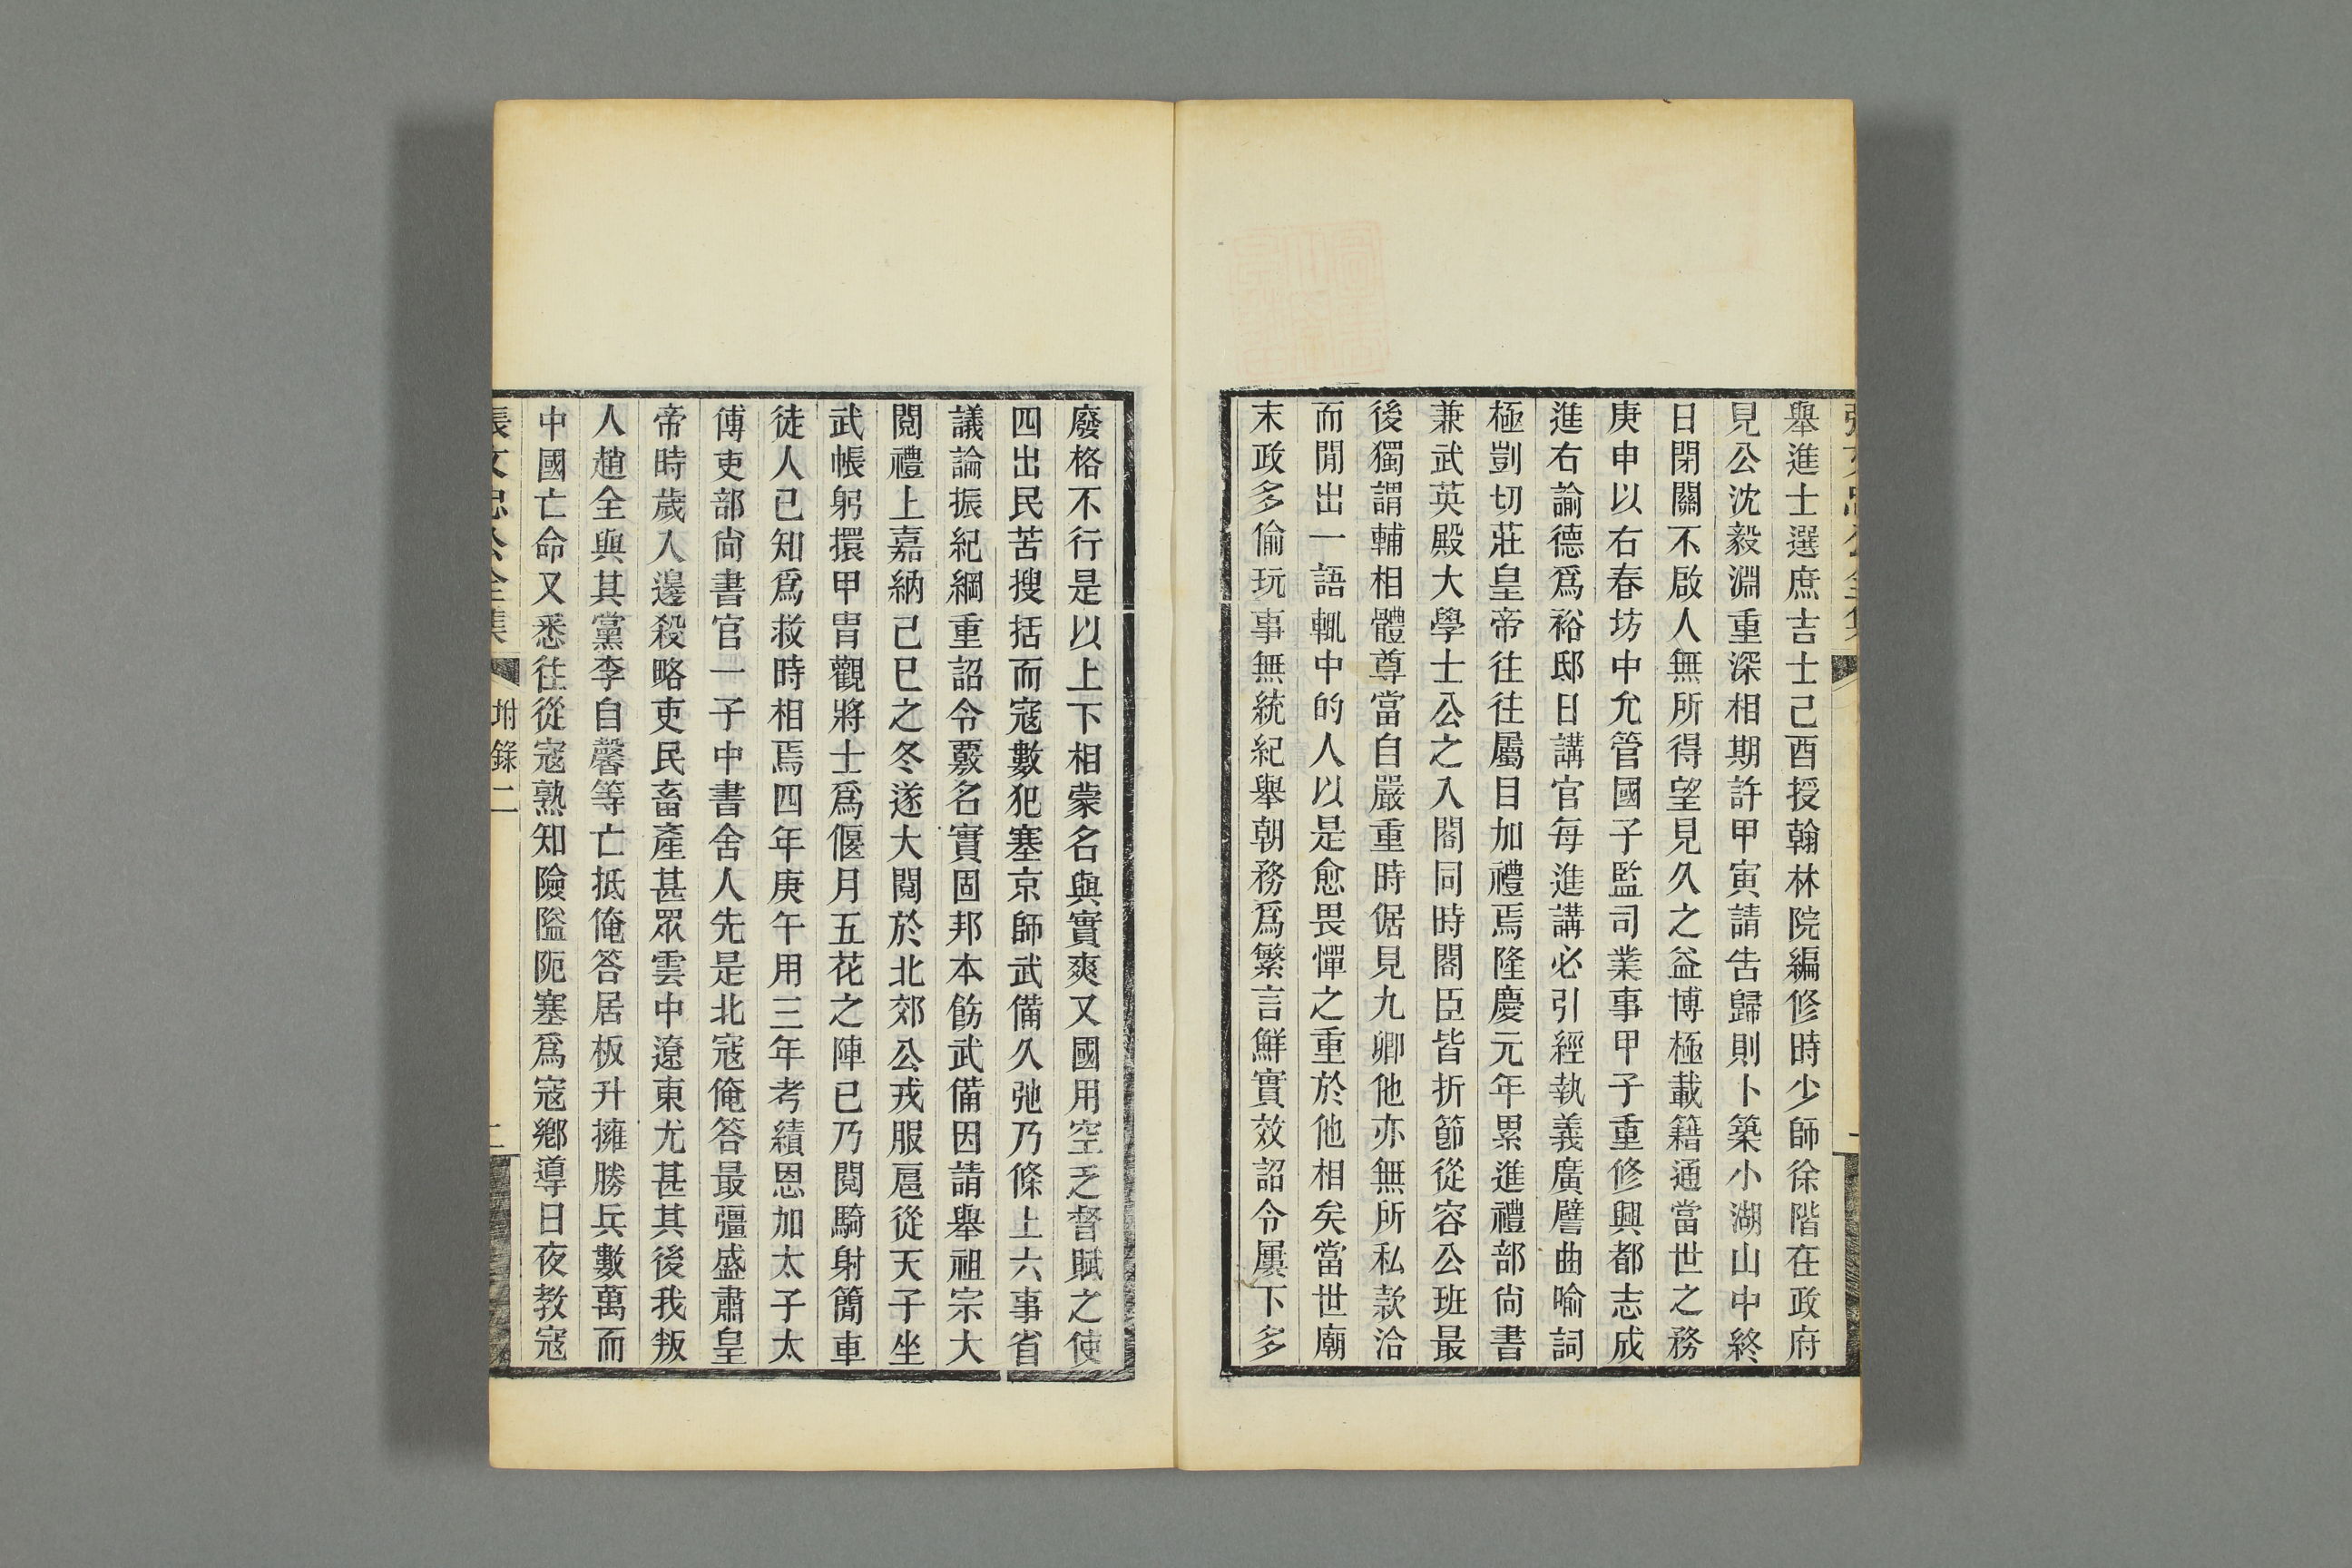 舉進士選庶吉士己酉授翰林院編修時少師徐階在政府
見公沈毅淵重深相期許甲寅請告歸則卜築小湖山中終
日閉關不啟人無所得望見久之益博極載籍通當世之務
庚申以右春坊中允管國子監司業事甲子重修興都志成
進右諭德爲裕邸日講官每進講必引經執義廣譬曲喻詞
極剴切莊皇帝往往屬目加禮焉隆慶元年累進禮部尚書
兼武英殿大學士公之入閣同時閣臣皆折節從容公班最
後獨謂輔相體尊當自嚴重時倨見九卿他亦無所私款洽
而閒出一語輒中的人以是愈畏憚之重於他相矣當世廟
末政多偷玩事無統紀舉朝務爲繁言鮮實效詔令屢下多
廢格不行是以上下相蒙名與實爽又國用空乏督賦之使
四出民苦搜括而寇數犯塞京師武備久弛乃條上六事省
議論振紀綱重詔令覈名實固邦本飭武備因請舉祖宗大
閱禮上嘉納己巳之冬遂大閱於北郊公戎服扈從天子坐
武帳躬擐甲冑觀將士爲偃月五花之陣已乃閱騎射簡車
徒人已知爲救時相焉四年庚午用三年考績恩加太子太
傅吏部尚書官一子中書舍人先是北寇俺答最彊盛肅皇
帝時歲入邊殺略吏民畜產甚眾雲中遼東尤甚其後我叛
人趙全與其黨李自馨等亡抵俺答居板升擁勝兵數萬而
中國亡命又悉往從寇熟知險隘阨塞爲寇鄉導日夜教寇
張文忠公全集 附錄二 二